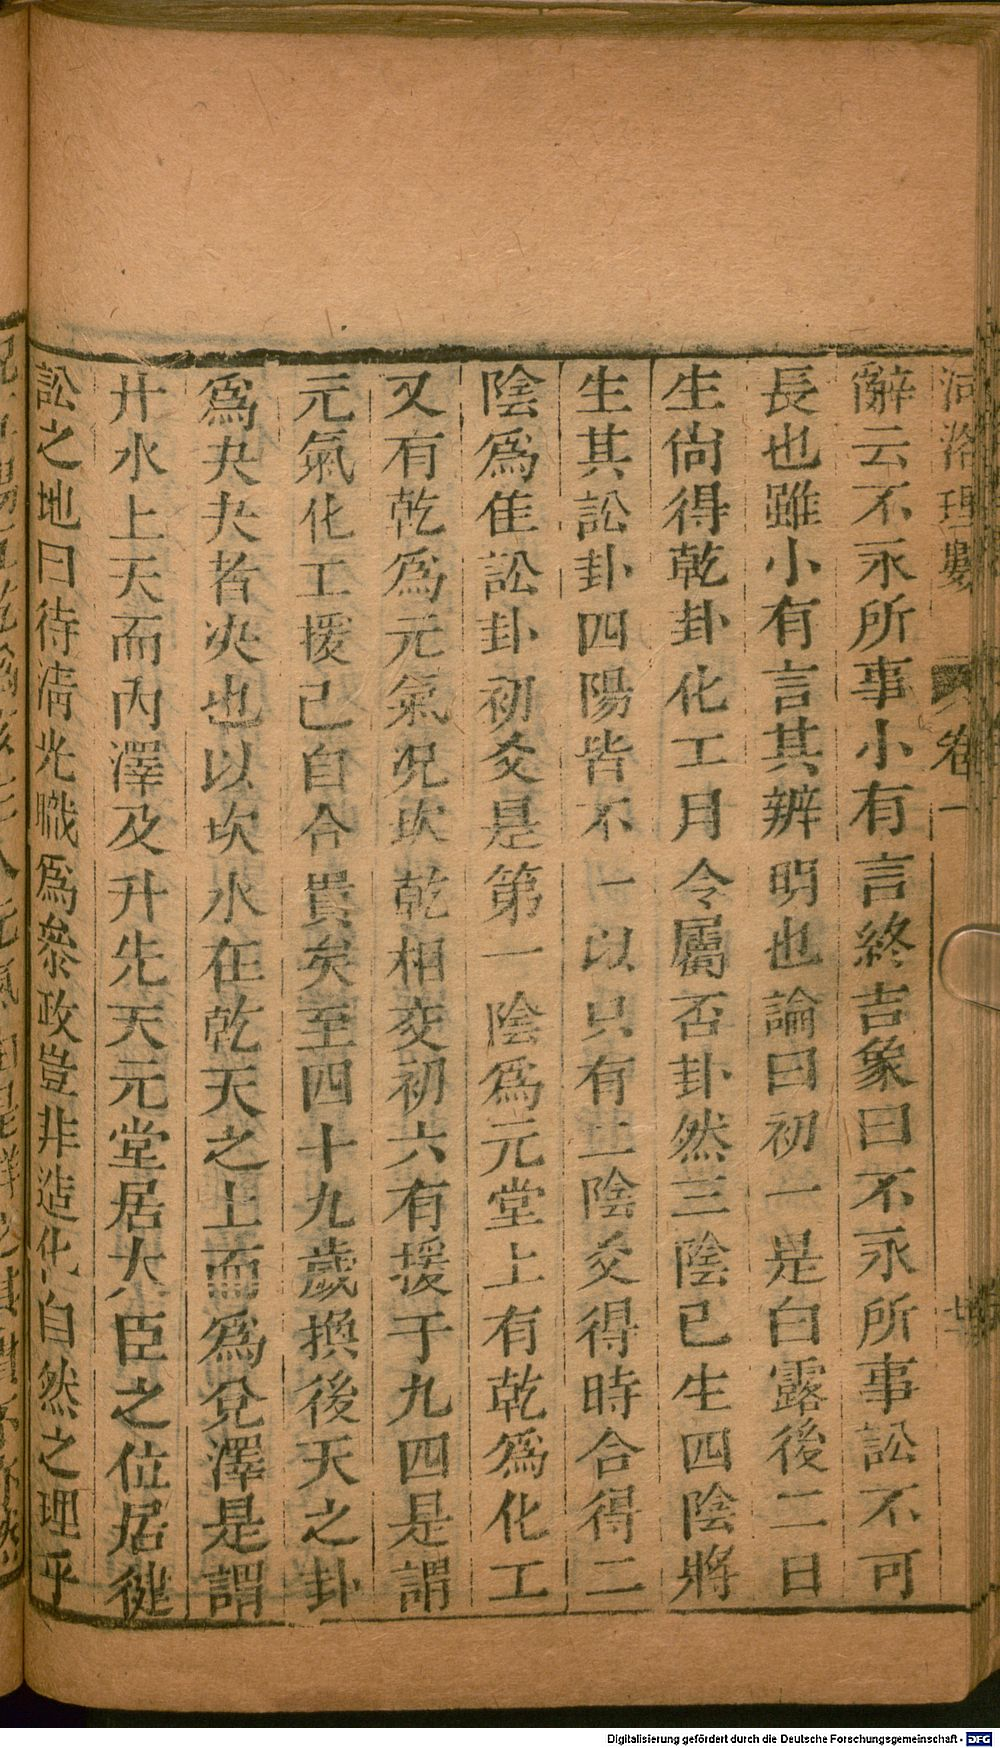 河洛理數 卷一
辭云不永所事小有言終吉象曰不永所事訟不可
長也雖小有言其辨明也論曰初一是白露後二日
生尙得乾卦化工月令屬否卦然三陰已生四陰將
生其訟卦四陽皆不一以只有二陰爻得時合得二
陰爲隹訟卦初爻是第一陰爲元堂上有乾爲化工
又有乾爲元氣况坎乾相交初六有援于九四是謂
元氣化工援己自合貴矣至四十九歲換後天之卦
爲夬夬者决也以坎水在乾天之上而爲兌澤是謂
井水上天而內澤及升先天元堂居大臣之位居健
訟之地曰待淸光職爲叅政豈非造化自然之理乎
Digitalisierung gefördert durch die Deutsche Forschungsgemeinschaft - DFG